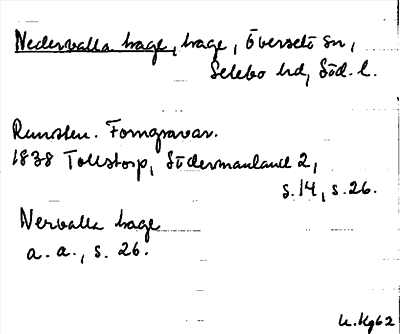 Nedervalla hage, hage, Överselö sn,
Selebo hd, Söd. l.
Runsten. Forngravar.
1838 Tollstorp, Södermanland 2,
s. 14, s. 26.
Nervalla hage
a. a., s. 26.
K.Kg62